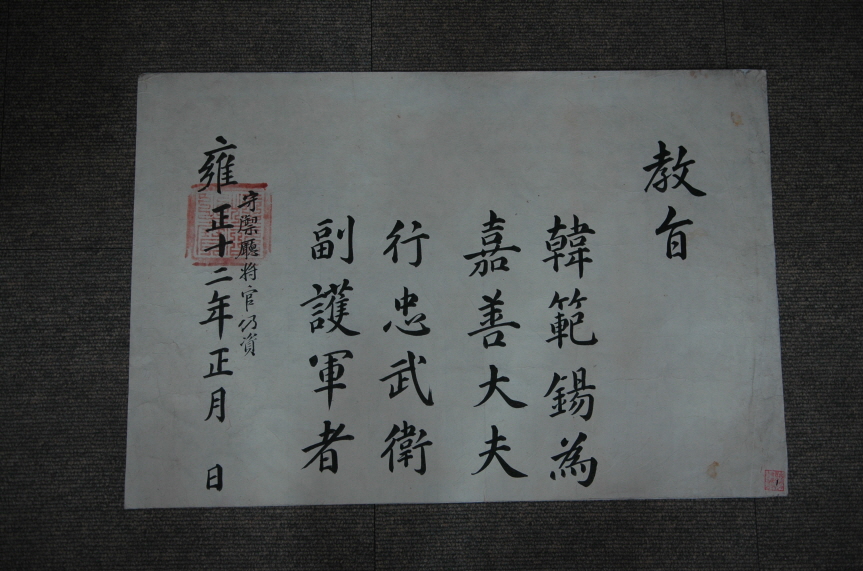 教旨
韓範錫為
嘉善大夫
行忠武衛
副護軍者
雍正十二年正月 日
守禦廳將官仍資